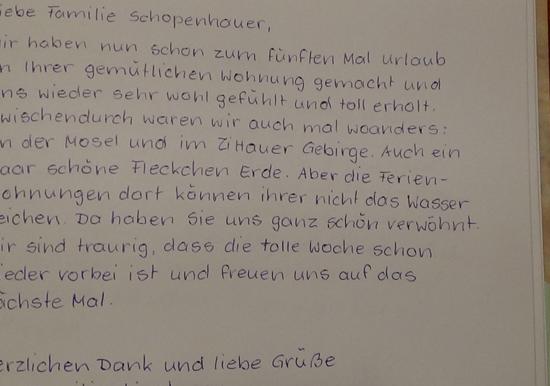 iebe Familie Schopenhauer,
ir haben nun schon zum fünften Mal Urlaub
n Ihrer gemütlichen Wohnung gemacht und
ns wieder sehr wohl gefühlt und toll erholt.
wischendurch waren wir auch mal woanders:
n der Mosel und im Zittauer Gebirge. Auch ein
aar schöne Fleckchen Erde. Aber die Ferien-
ohnungen dort können ihrer nicht das Wasser
eichen. Da haben Sie uns ganz schön verwöhnt.
ir sind traurig, dass die tolle Woche schon
ieder vorbei ist und freuen uns auf das
ächste Mal.
erzlichen Dank und liebe Grüße